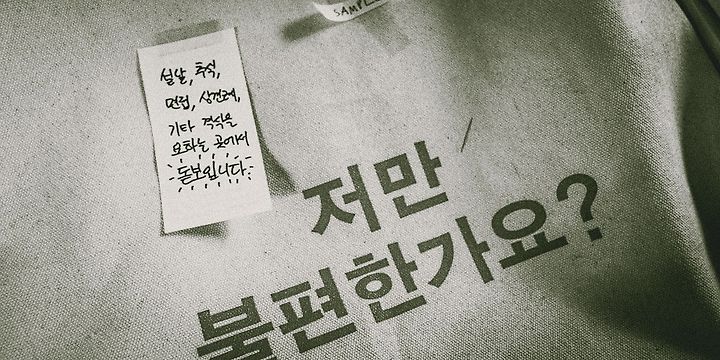 SAMPLE
설날, 추석,
면접, 상견례,
기타 격식을
요하는 곳에서
돋보입니다
저만
불편한가요?